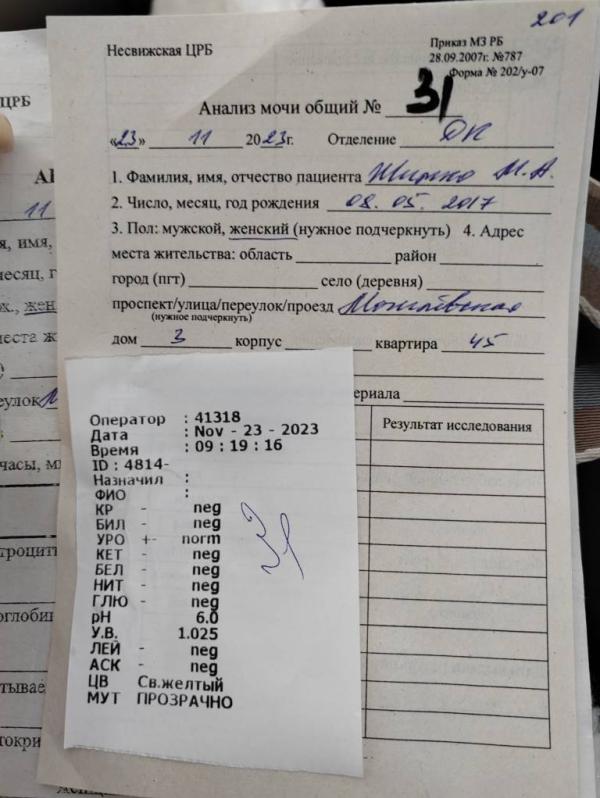 201
Несвижская ЦРБ
Приказ МЗ РБ
28.09.2007г. №787
Форма № 202/у-07
Анализ мочи общий № 31
«23» 11 2023г. Отделение
1. Фамилия, имя, отчество пациента М.А.
2. Число, месяц, год рождения 08.05.2017
3. Пол: мужской, женский (нужное подчеркнуть) 4. Адрес
места жительства: область район
город (пгт) село (деревня)
проспект/улица/переулок/проезд Могилёвская
(нужное подчеркнуть)
дом 3 корпус квартира 45
Результат исследования
Оператор : 41318
Дата : Nov - 23 - 2023
Время : 09 : 19 : 16
ID : 4814-
Назначил :
ФИО :
КР - neg
БИЛ - neg
УРО +- norm
КЕТ - neg
БЕЛ - neg
НИТ - neg
ГЛЮ - neg
pH 6.0
У.В. 1.025
ЛЕЙ - neg
АСК - neg
ЦВ Св.желтый
МУТ ПРОЗРАЧНО
ЦРБ
11